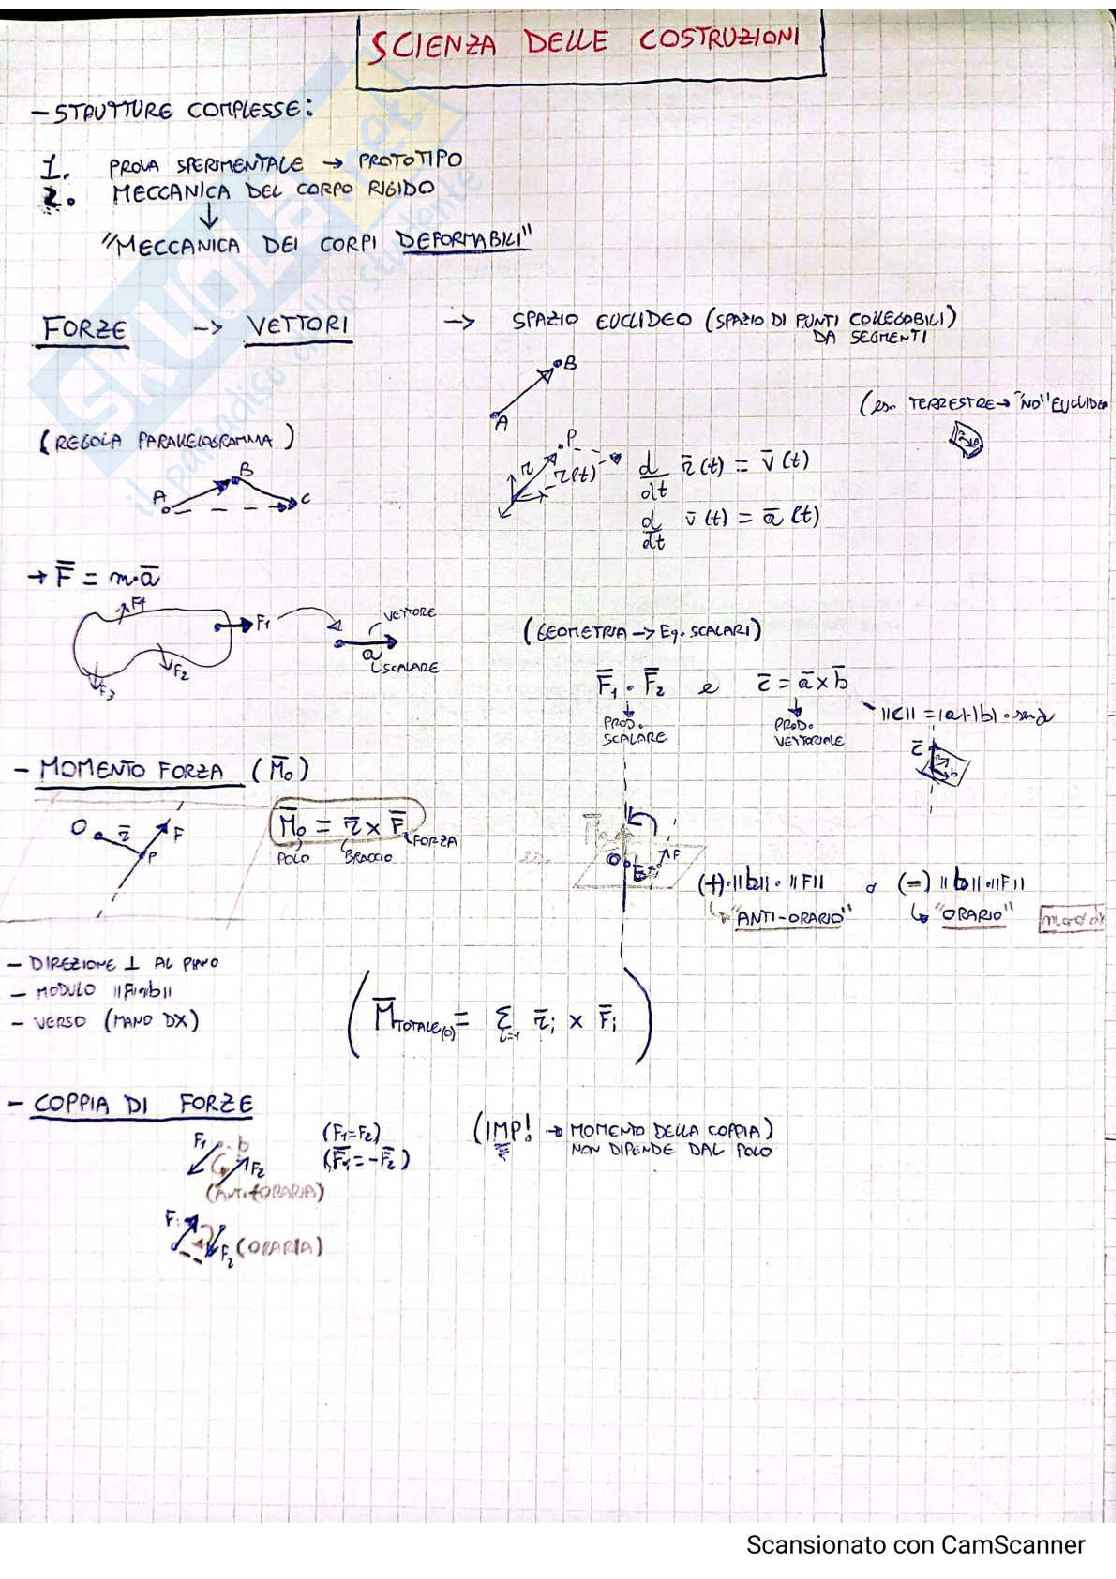 SCIENZA DELLE COSTRUZIONI
- STRUTTURE COMPLESSE:
1. PROVA SPERIMENTALE → PROTOTIPO
2. MECCANICA DEL CORPO RIGIDO
↓
"MECCANICA DEI CORPI DEFORMABILI"
FORZE → VETTORI → SPAZIO EUCLIDEO (SPAZIO DI PUNTI COLLEGABILI)
DA SEGMENTI
B
A
(es. TERRESTRE → "NO" EUCLIDEO
(REGOLA PARALLELOGRAMMA)
A B C
P
r r(t)
d/dt r̄(t) = v̄(t)
d/dt v̄(t) = ā(t)
→ F̄ = m·ā
F1
F2
F3
F4
VETTORE
a
SCALARE
(GEOMETRIA → Eq. SCALARI)
F̄₁ · F̄₂ e c̄ = ā × b̄
PROD. SCALARE
PROD. VETTORIALE
||c|| = |a|·|b|·senα
c̄
- MOMENTO FORZA (M̄₀)
O r̄ P F
M̄₀ = r̄ × F̄
POLO BRACCIO FORZA
O F
(+)·||b||·||F|| o (-) ||b||·||F||
"ANTI-ORARIO" "ORARIO"
- DIREZIONE ⊥ AL PIANO
- MODULO ||F||·||b||
- VERSO (MANO DX)
(M̄ TOTALE(O) = Σ i=1 r̄i × F̄i)
- COPPIA DI FORZE
F1 b F2
(ANTI-ORARIA)
(F1=F2)
(F̄1=-F̄2)
(IMP! → MOMENTO DELLA COPPIA)
NON DIPENDE DAL POLO
F1 F2 (ORARIA)
Scansionato con CamScanner